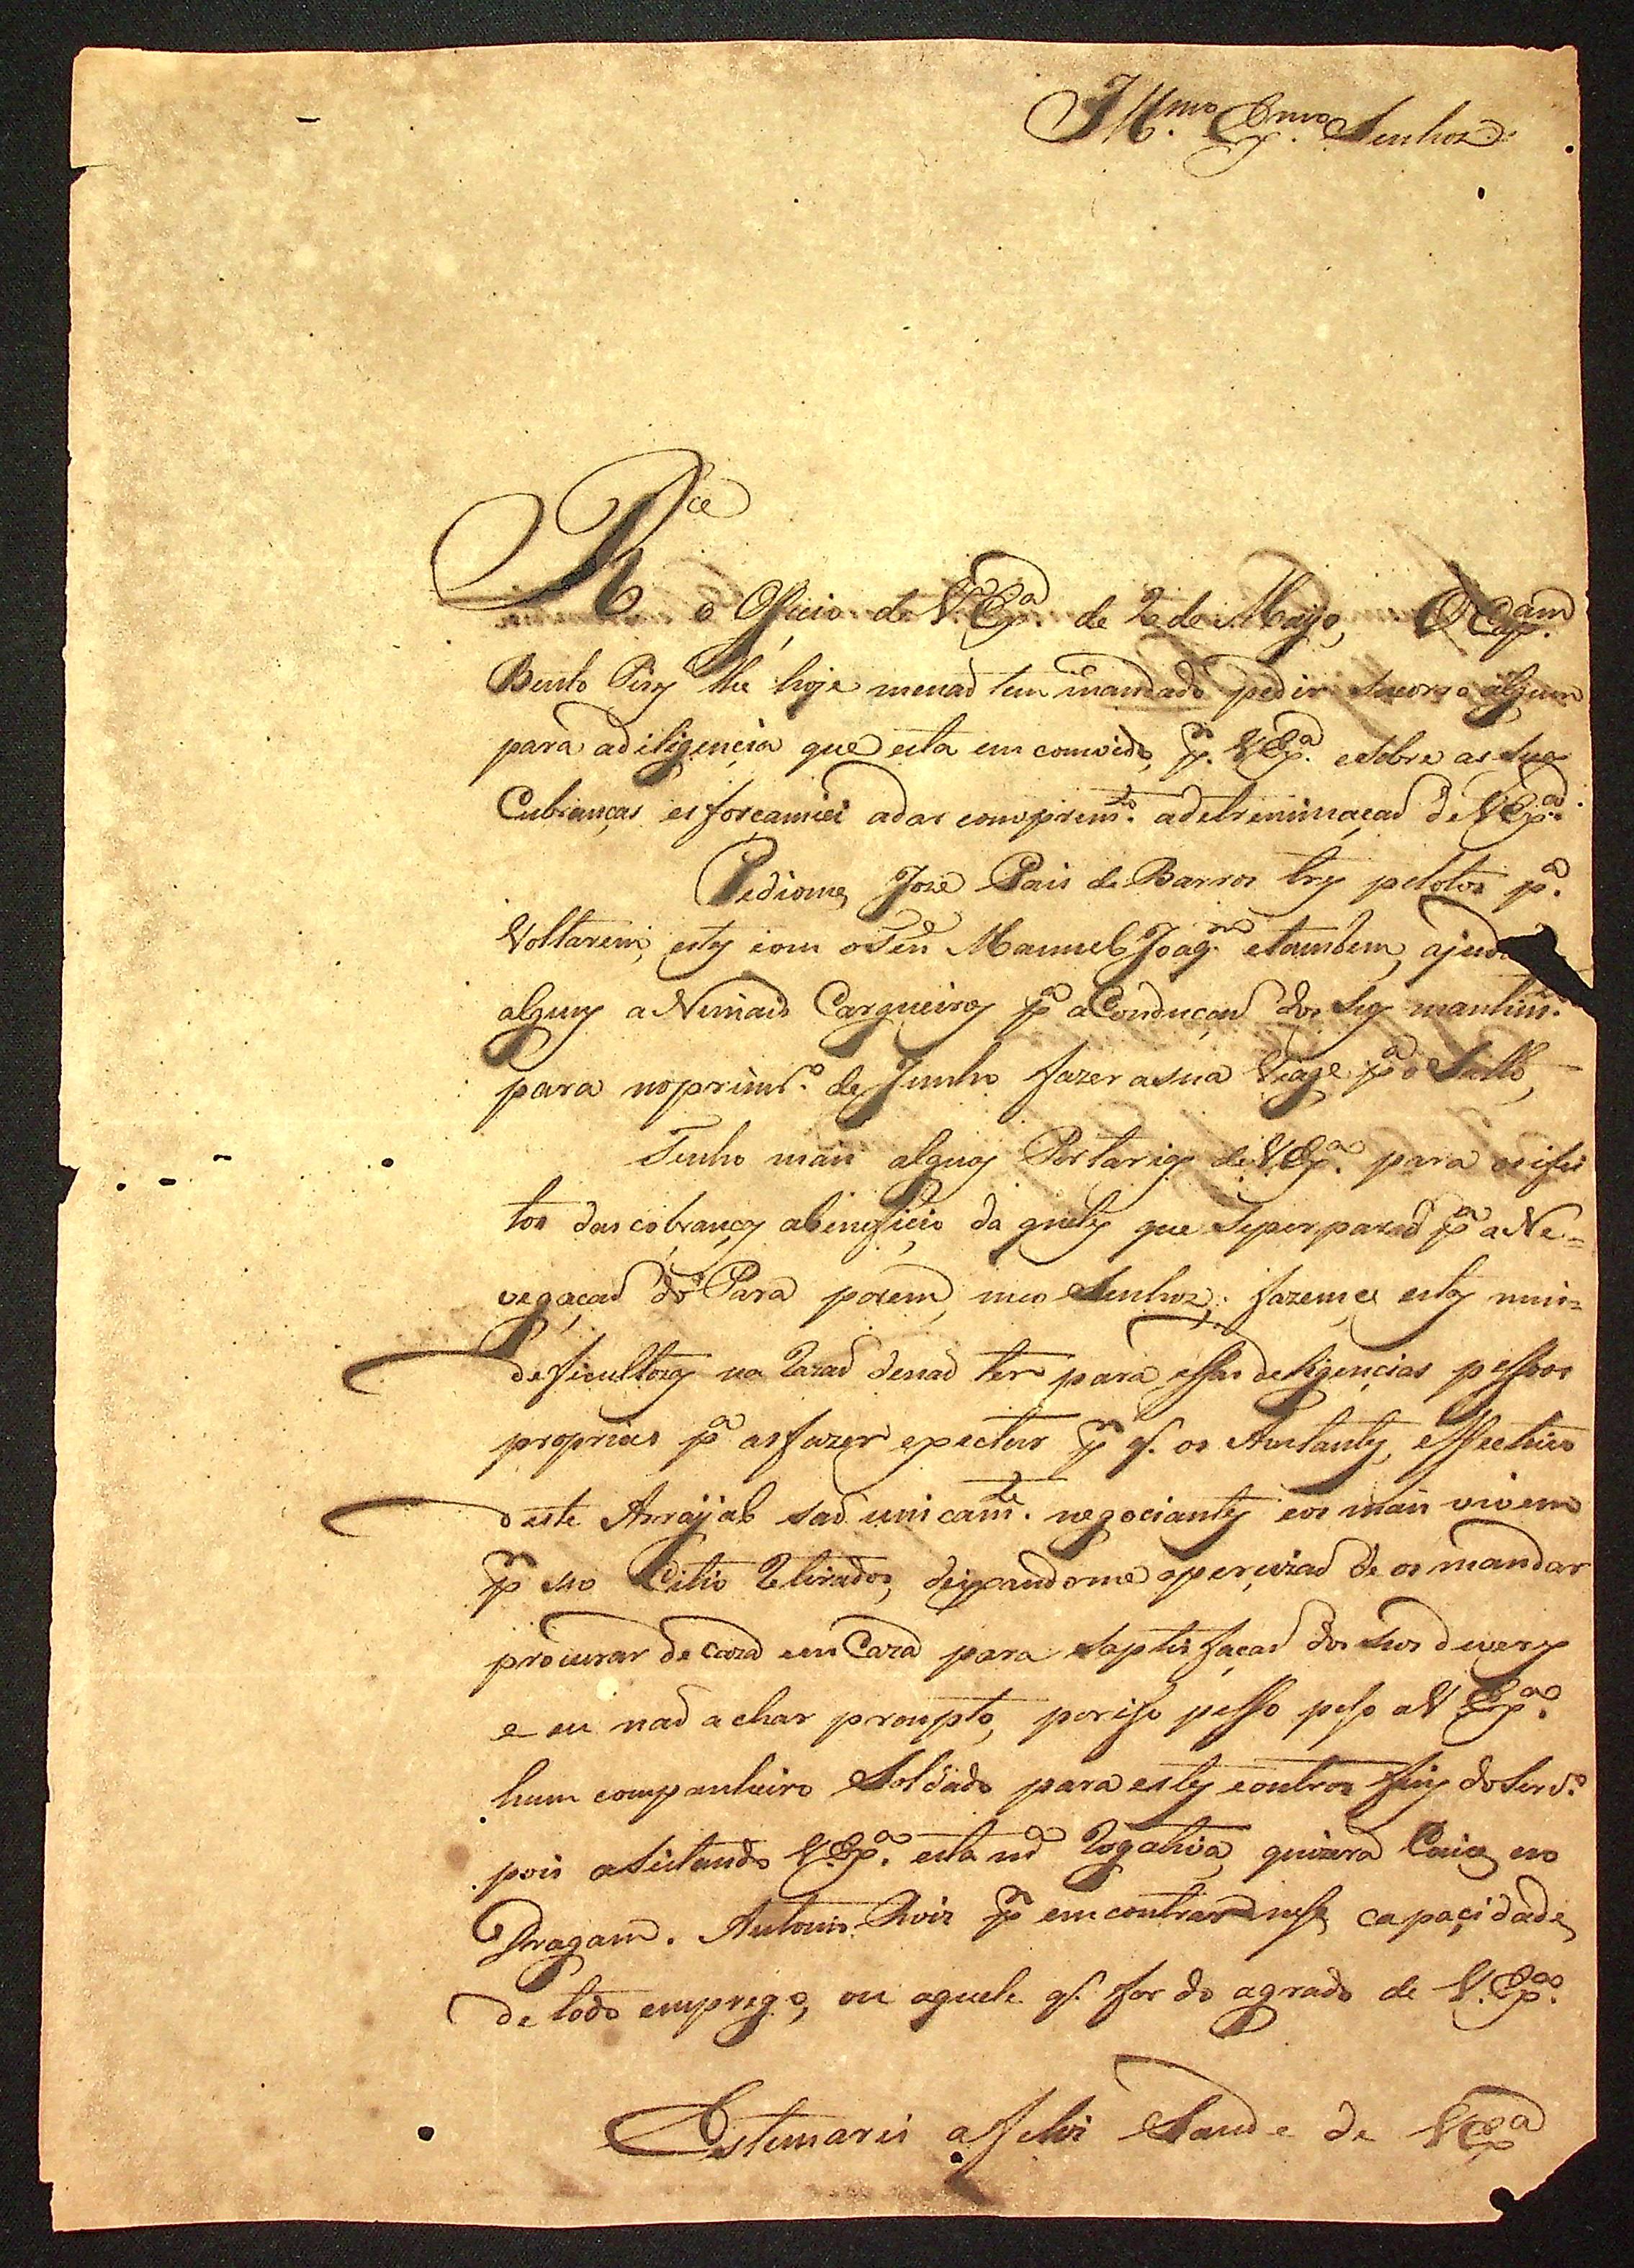 Ill.mo Ex.mo Senhor
R.ce o Oficio de V Ex.a de 2 de Mayo, O Cap.am
Bento Pirz the hoje menad tem mandado pedir socorro algum
para adiligencia que esta em comvido, p.r V Ex.a esobre as suas
Cubranças esforcamiei adar comprim.to adetreminaçad de V Ex.a
Pediome, Joze Pais de Barros trez pelotos p.a
Voltarem, estz com oseu Manuel Joaq.m etambem, ajud
alguns a Nimais Cargueiroz p.a aConduçaõ dos seuz mantim.
para noprim.o de Junho fazer asua Viage p.a o Salto,
Tenho mais algũas Portarias de V Ex.a para os ifei
tos das cobranças abineficio da quelz que seperparad p.a aNa=
vegaçad do Para porem, meo Senhor, fazemce estas mui=
deficultozas na Razad denad ter para essas deligencias pessoas
proprias p.a asfazer expectar p.r q.' os Avitantz, effectivos
deste Arrayal sad unicam.te negociantz eos mais vivem
p.r seo Citio Retirados, deixandome aperçizad de os mandar
procurar de caza em Caza para saptisfaçad dos seos deverz
e eu nad achar prompto, poriso pesso peso aV Ex.a
hum companheiro Soldado para estz eoutros finz do Serv.o
pois aseitando V. Ex.a esta m.a Rogativa, quizera Caice no
Dragam. Antonio Roiz p.r emcontrar nese, capaçidade,
de todo emprego, ou aquele q.' for do agrado de V. Ex.a
Estemarei afeliz Saude de V Ex.a